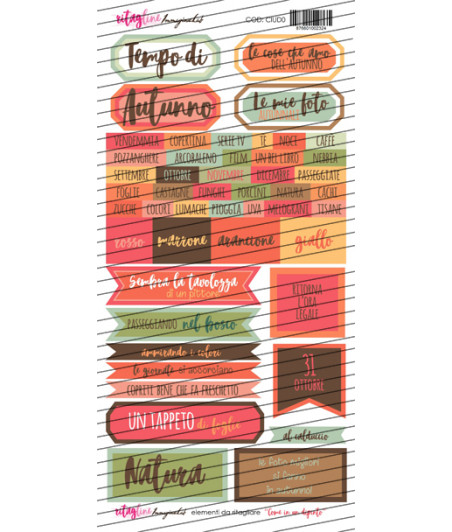 ritagline Imaginalis
COD. CIU00
Tempo di
le cose che amo
DELL'AUTUNNO
Autunno
Le mie foto
AUTUNNALI
VENDEMMIA COPERTINA SERIE TV TE NOCE CAFFE
POZZANGHERE ARCOBALENO FIENI UN BEL LIBRO NEBBIA
SETTEMBRE OTTOBRE NOVEMBRE DICEMBRE PASSEGGIATE
FOGLIE CASTAGNE FUNGHI PORCINI NATURA CACHI
ZUCCHE COLORI LUMACHE PIOGGIA UVA MELOGRANI TISANE
rosso marrone arancione giallo
Sembra la tavolozza
di un pittore
RITORNA
L'ORA
LEGALE
PASSEGGIANDO nel bosco
ammirando i colori
le giornate si accorciano
COPRITI BENE CHE FA FRESCHETTO
31
OTTOBRE
UN TAPPETO di foglie
al calduccio
Natura
le foto migliori
si fanno
in autunno!
ritagline elementi da ritagliare